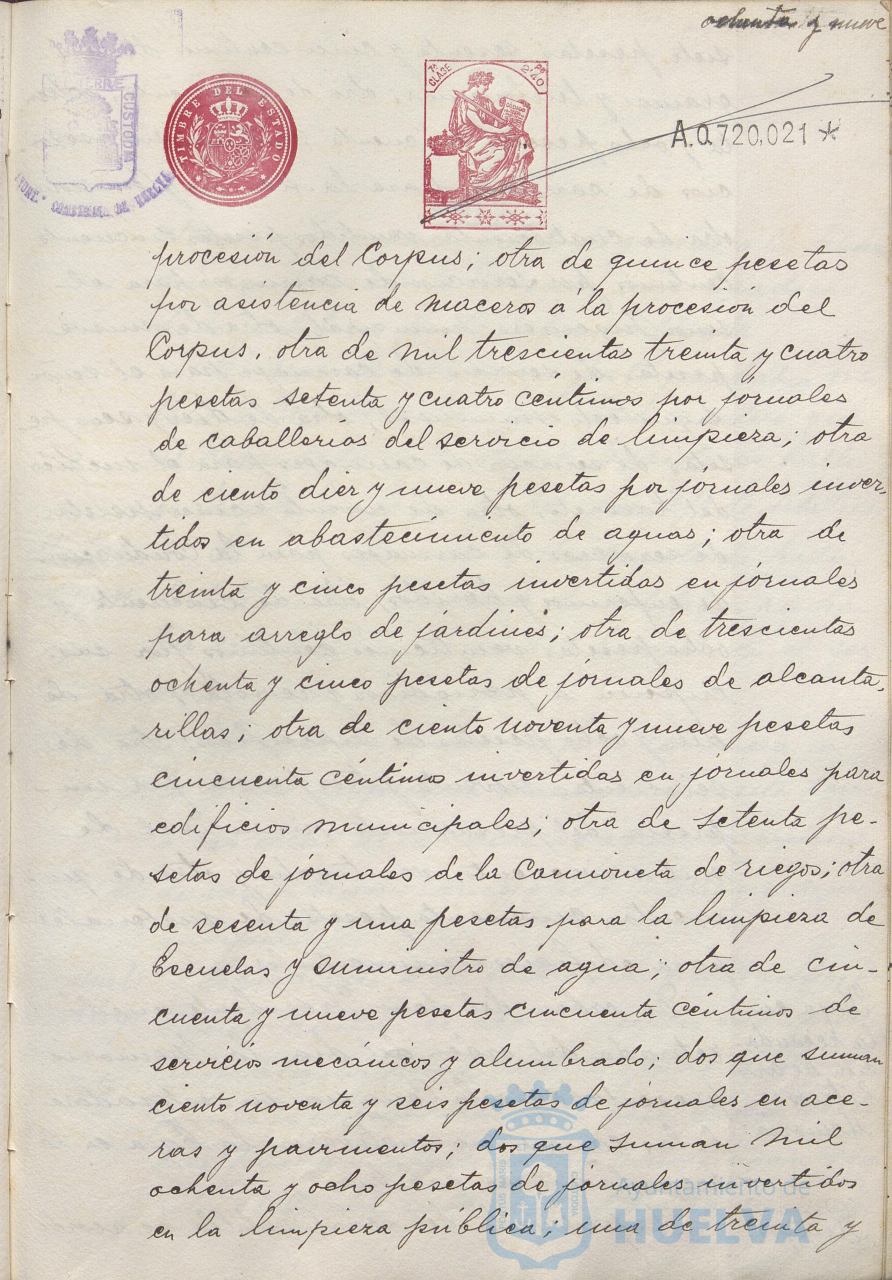 ochenta y nueve
TIMBRE DEL ESTADO
7ª CLASE
2'40 Ps
A.0.720,021 *
CUSTODIA
procesión del Corpus; otra de quince pesetas
por asistencia de maceros á la procesión del
Corpus, otra de mil trescientas treinta y cuatro
pesetas setenta y cuatro céntimos por jornales
de caballerias del servicio de limpieza; otra
de ciento diez y nueve pesetas por jornales inver-
tidos en abastecimiento de aguas; otra de
treinta y cinco pesetas invertidas en jornales
para arreglo de jardines; otra de trescientas
ochenta y cinco pesetas de jornales de alcanta-
rillas; otra de ciento noventa y nueve pesetas
cincuenta céntimos invertidas en jornales para
edificios municipales; otra de setenta pe-
setas de jornales de la Camioneta de riegos; otra
de sesenta y una pesetas para la limpieza de
Escuelas y suministro de agua; otra de cin-
cuenta y nueve pesetas cincuenta céntimos de
servicios mecánicos y alumbrado; dos que suman
ciento noventa y seis pesetas de jornales en ace-
ras y pavimentos; dos que suman mil
ochenta y ocho pesetas de jornales invertidos
en la limpieza pública; una de treinta y
Ayuntamiento de
HUELVA